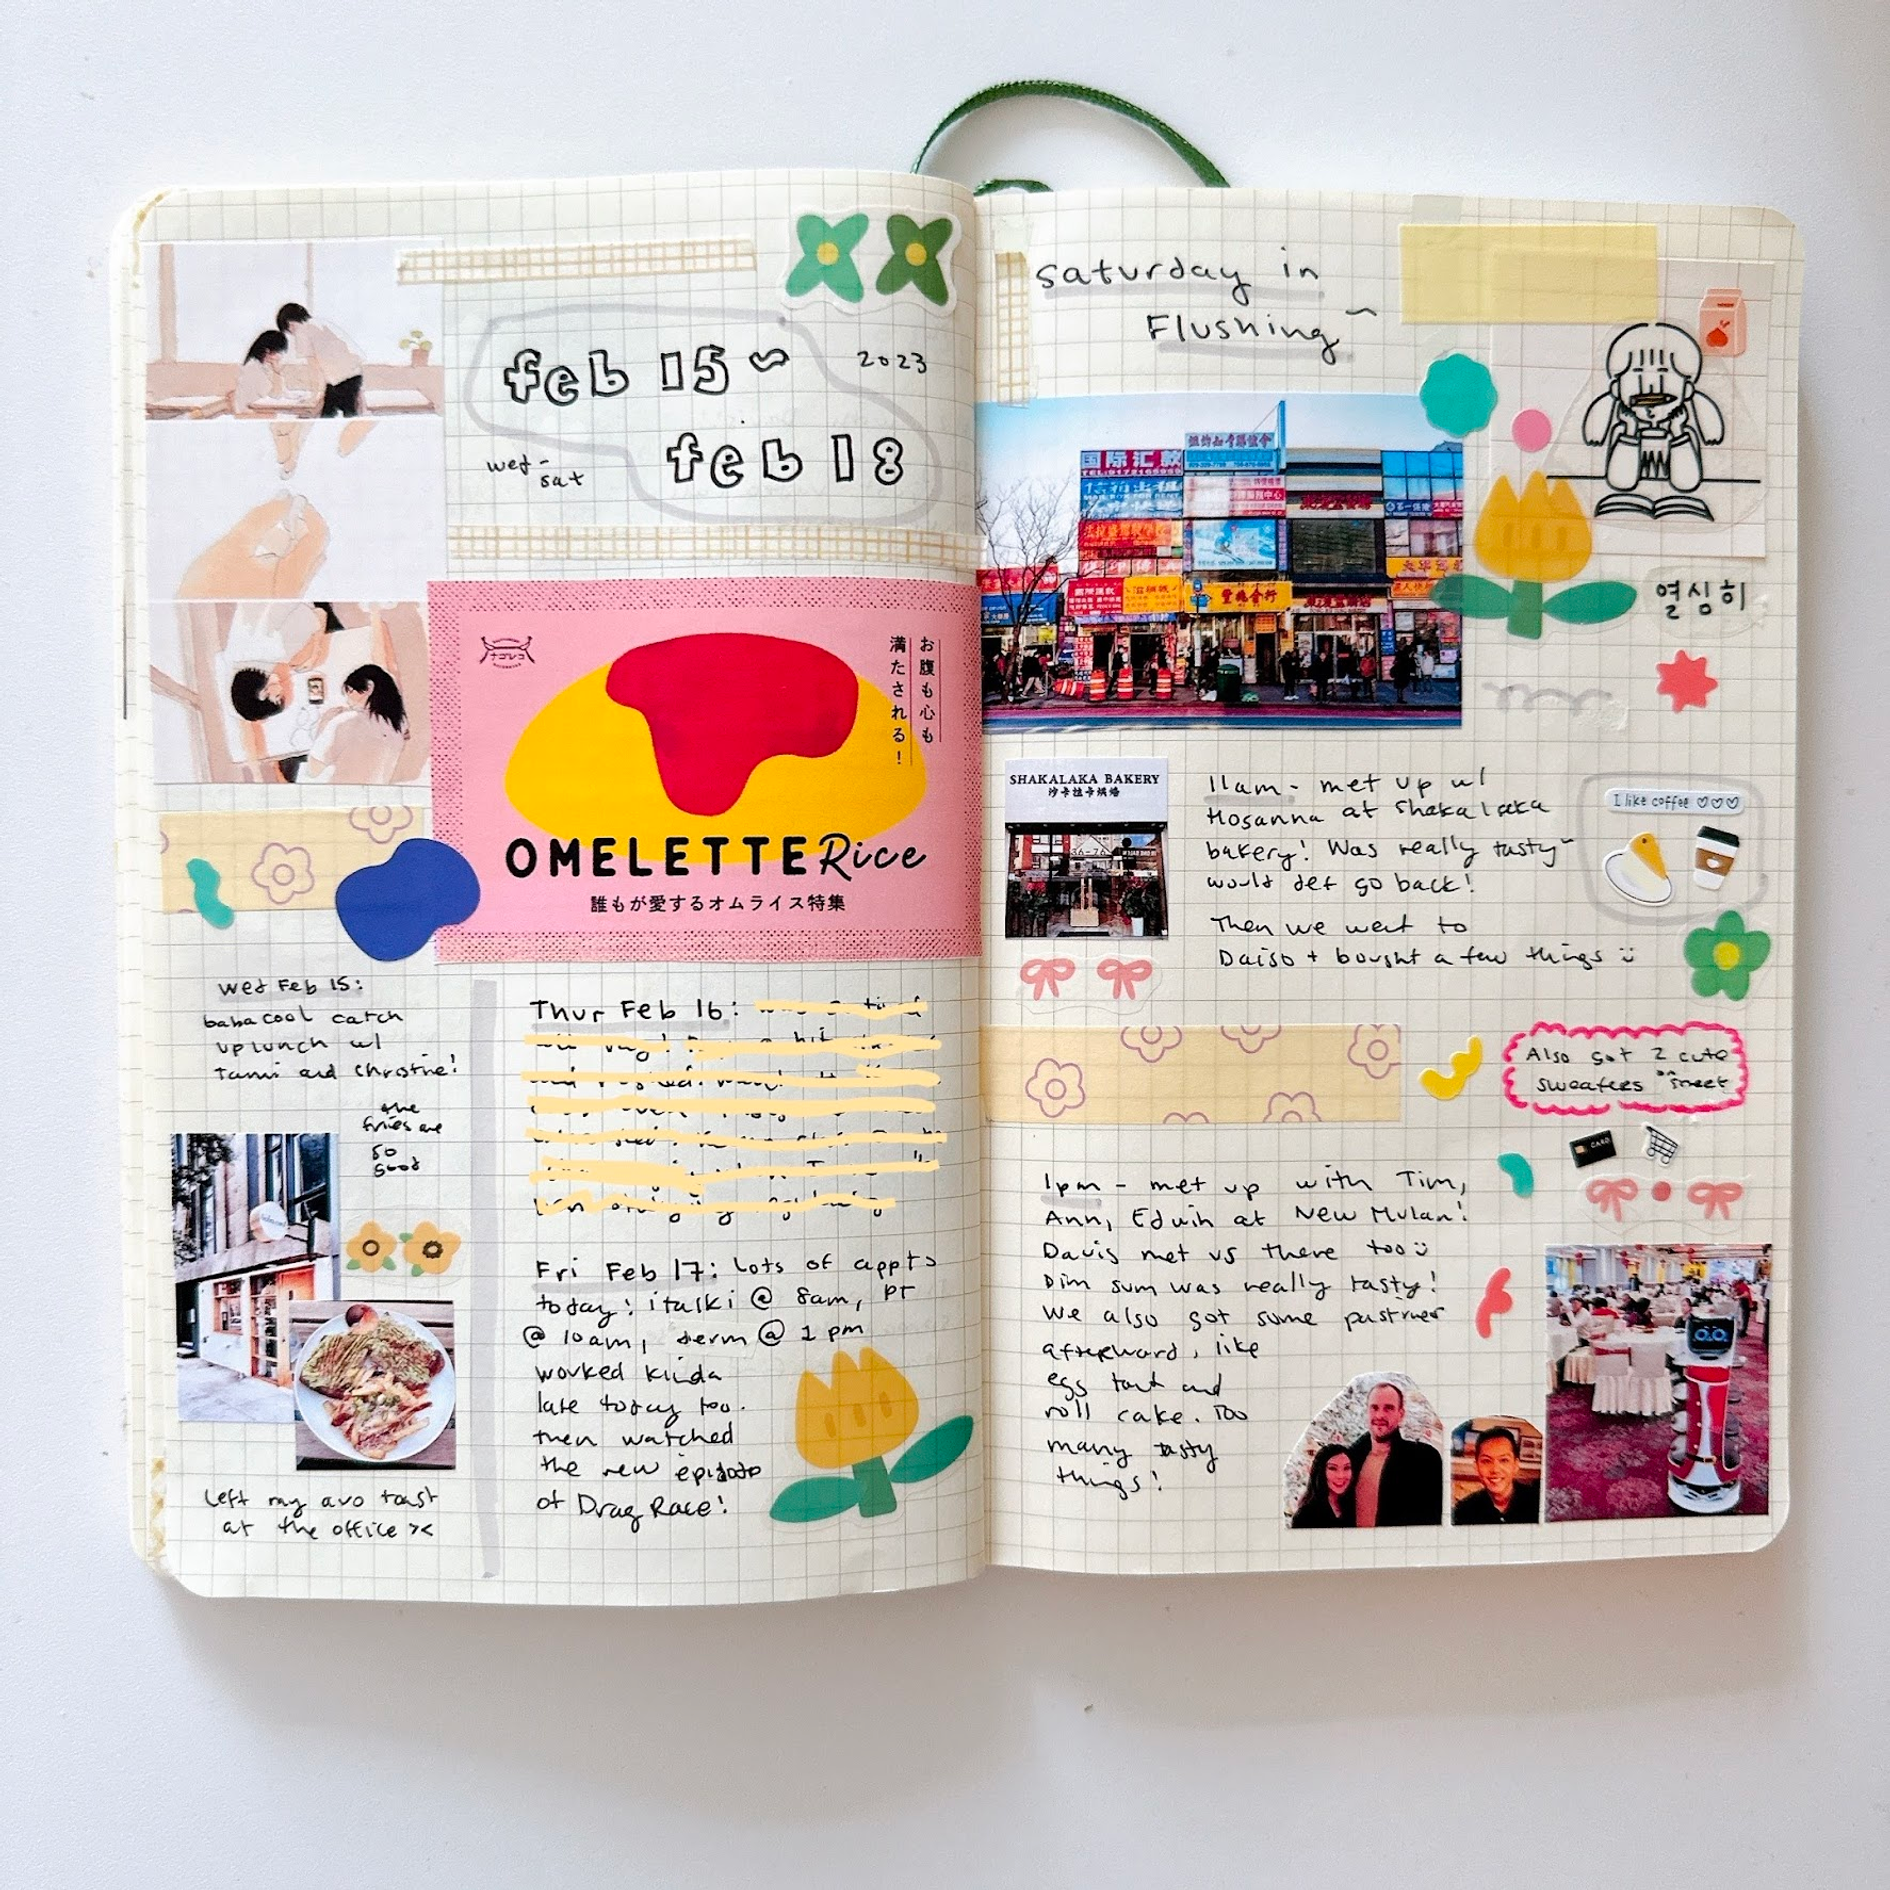 feb 15 ~
2023
wed -
sat
feb 18
ナゴレコ
お腹も心も
満たされる!
OMELETTE Rice
誰もが愛するオムライス特集
wed Feb 15:
babacool catch
up lunch w/
Tammi and Christine!
the
fries are
so
good
left my avo toast
at the office ><
Thur Feb 16:
Fri Feb 17: Lots of appts
today! italki @ 8am, PT
@ 10am, derm @ 1 pm
worked kinda
late today too.
then watched
the new episode
of Drag Race!
Saturday in
Flushing ~
国际汇款
열심히
SHAKALAKA BAKERY
沙卡拉卡烘焙
11am - met up w/
Hosanna at Shakalaka
bakery! Was really tasty~
would def go back!
Then we went to
Daiso + bought a few things
I like coffee ♡♡♡
Also got 2 cute
sweaters on street
CARD
1pm - met up with Tim,
Ann, Edwin at New Mulan!
Davis met us there too
Dim sum was really tasty!
We also got some pastries
afterward, like
egg tart and
roll cake. Too
many tasty
things!